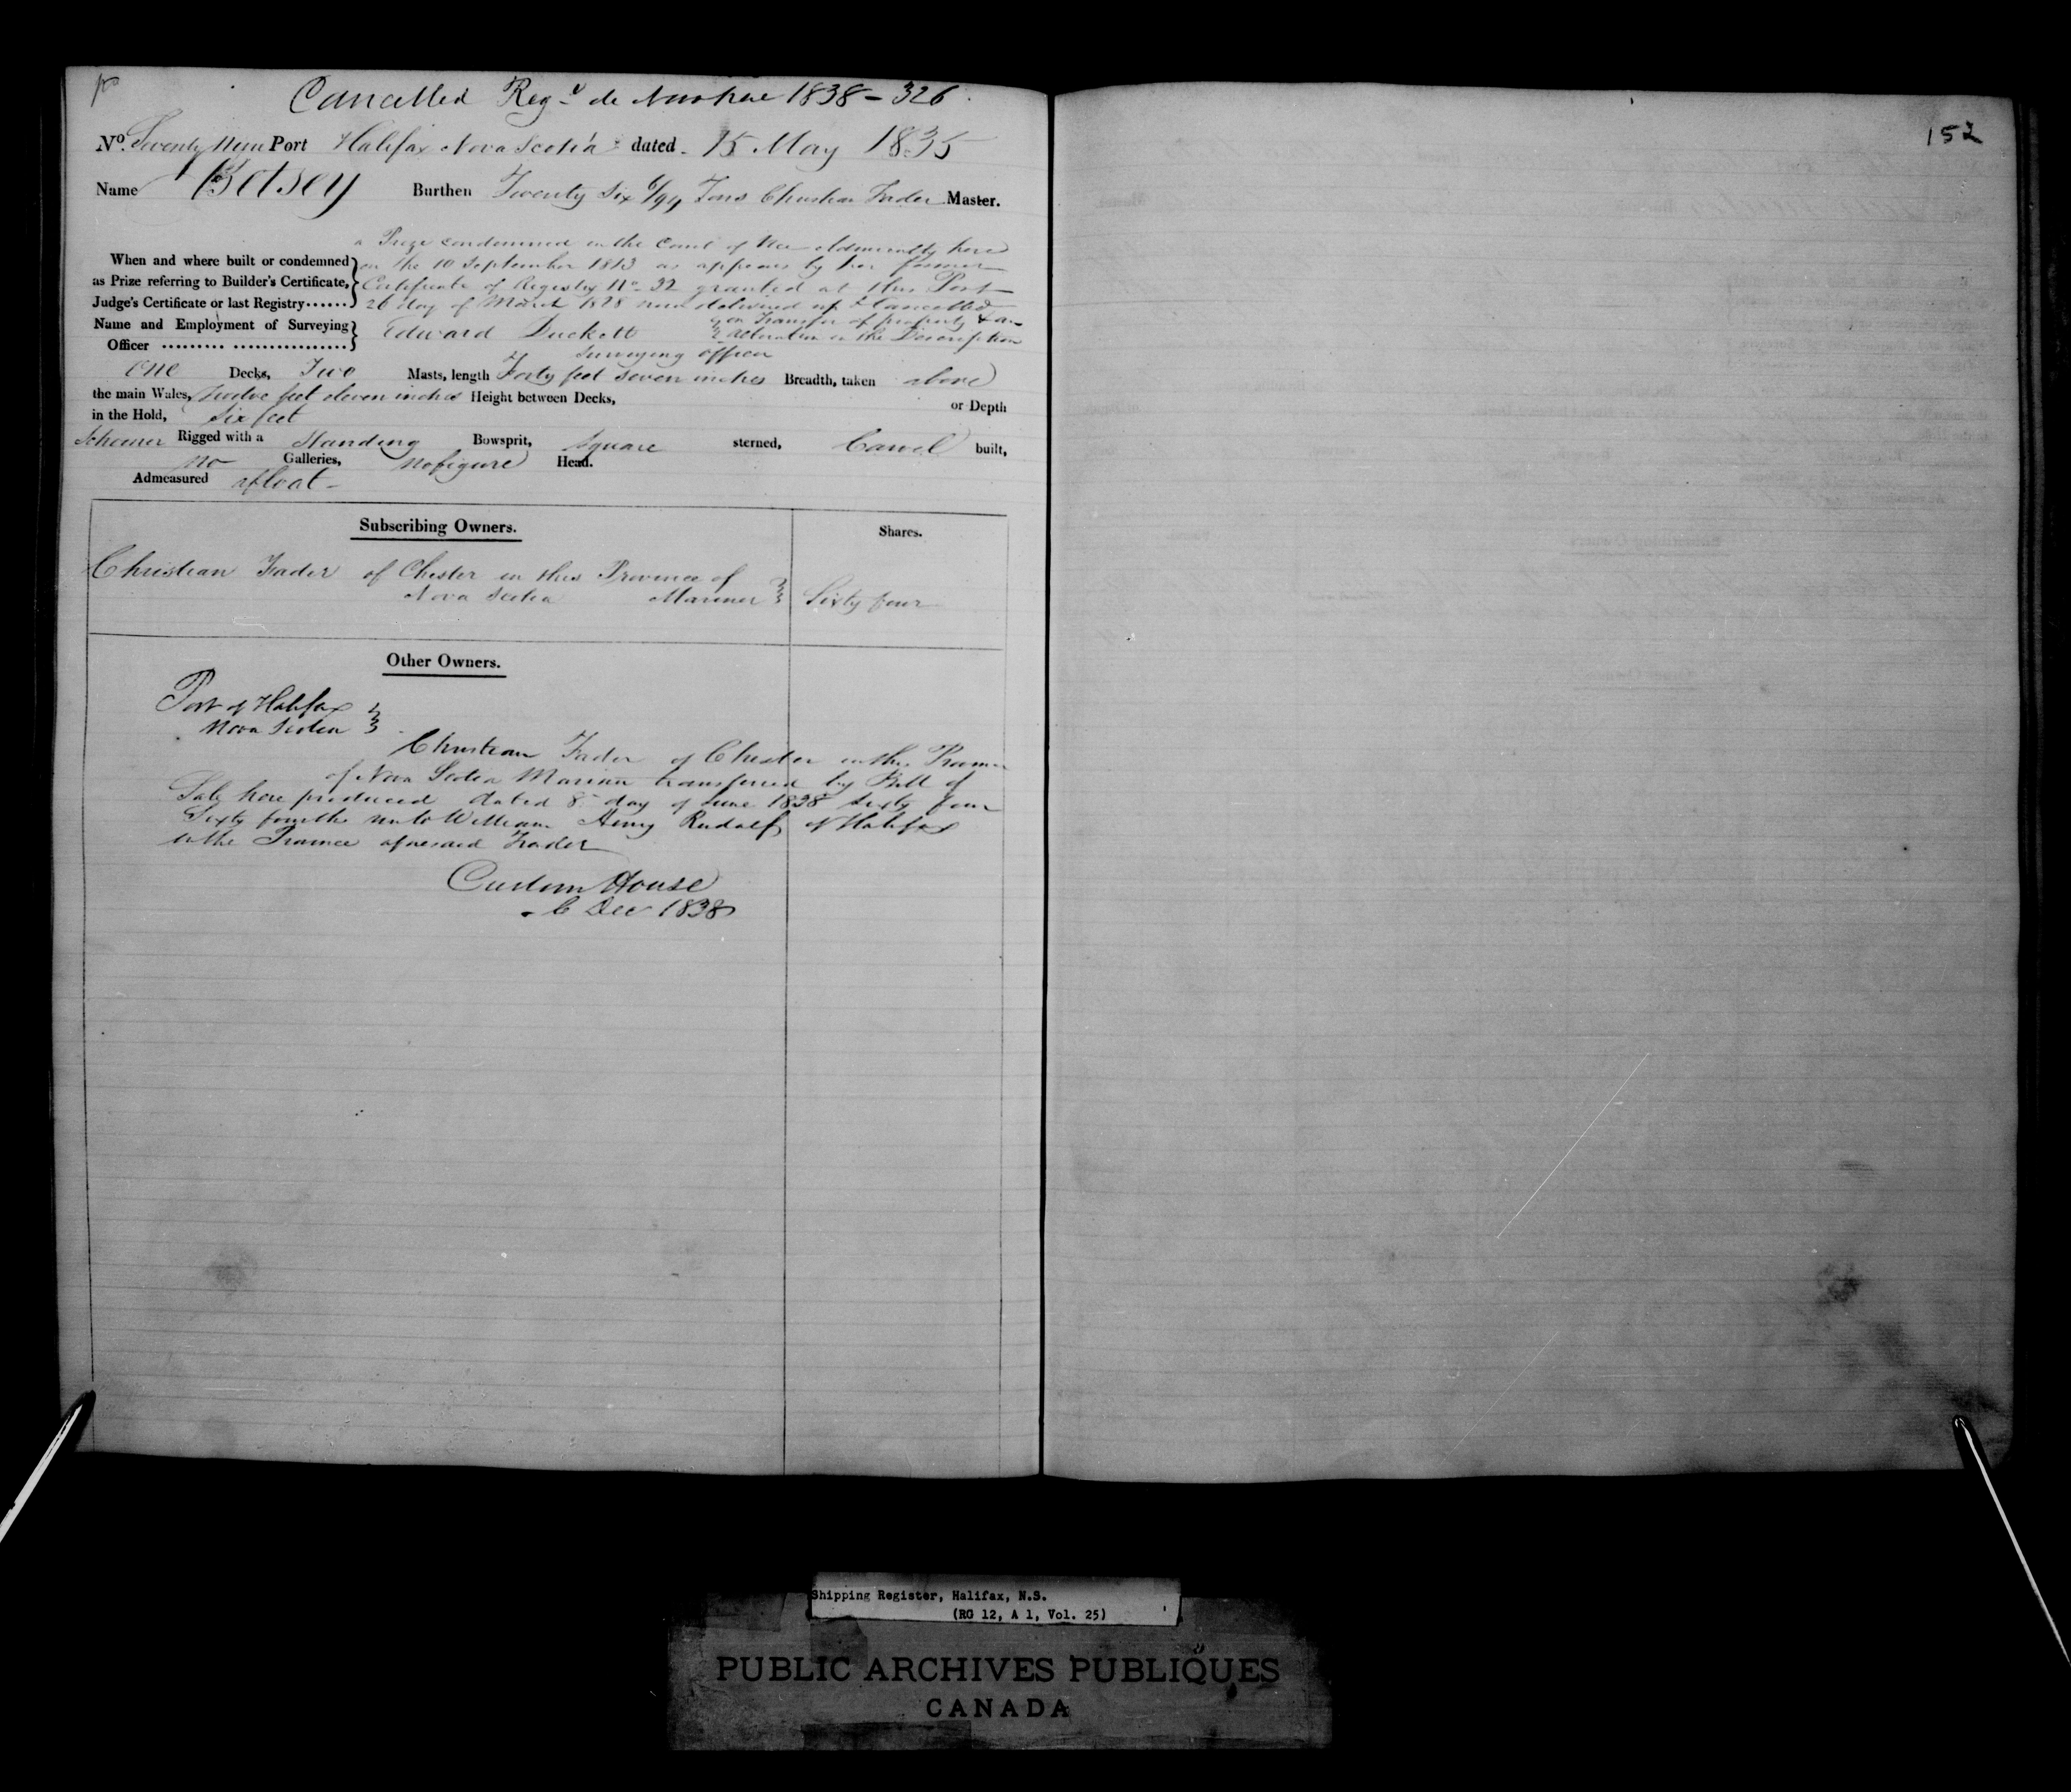 Cancelled Reg.d de Novo here 1838 - 326
152
No. Seventy Nine Port Halifax Nova Scotia dated 15 May 1835
Name Betsey Burthen Twenty Six 6/94 Tons Christian Fader Master.
a Prize condemned in the Court of Vice Admiralty here
When and where built or condemned on the 10 September 1813 as appears by her former
as Prize referring to Builder's Certificate, Certificate of Registry No. 32 granted at this Port
Judge's Certificate or last Registry...... 26 day of March 1828 now delivered up & Cancelled
Name and Employment of Surveying Edward Duckett on Transfer of property & an
Officer ......... ................ alteration in the Description
Surveying officer
One Decks, Two Masts, length Forty feet seven inches Breadth, taken above
the main Wales, Twelve feet eleven inches Height between Decks, or Depth
in the Hold, Six feet
Schooner Rigged with a Standing Bowsprit, Square sterned, Carvel built,
no Galleries, no figure Head.
Admeasured afloat
Subscribing Owners. Shares.
Christian Fader of Chester in this Province of
Nova Scotia Mariner Sixty four
Other Owners.
Port of Halifax
Nova Scotia
Christian Fader of Chester in the Province
of Nova Scotia Mariner transferred by Bill of
Sale here produced dated 8 day of June 1838 Sixty four
Sixty fourths unto William Henry Rudolf of Halifax
in the Province aforesaid Trader
Custom House
6 Dec 1838
Shipping Register, Halifax, N.S.
(RG 12, A 1, Vol. 25)
PUBLIC ARCHIVES PUBLIQUES
CANADA